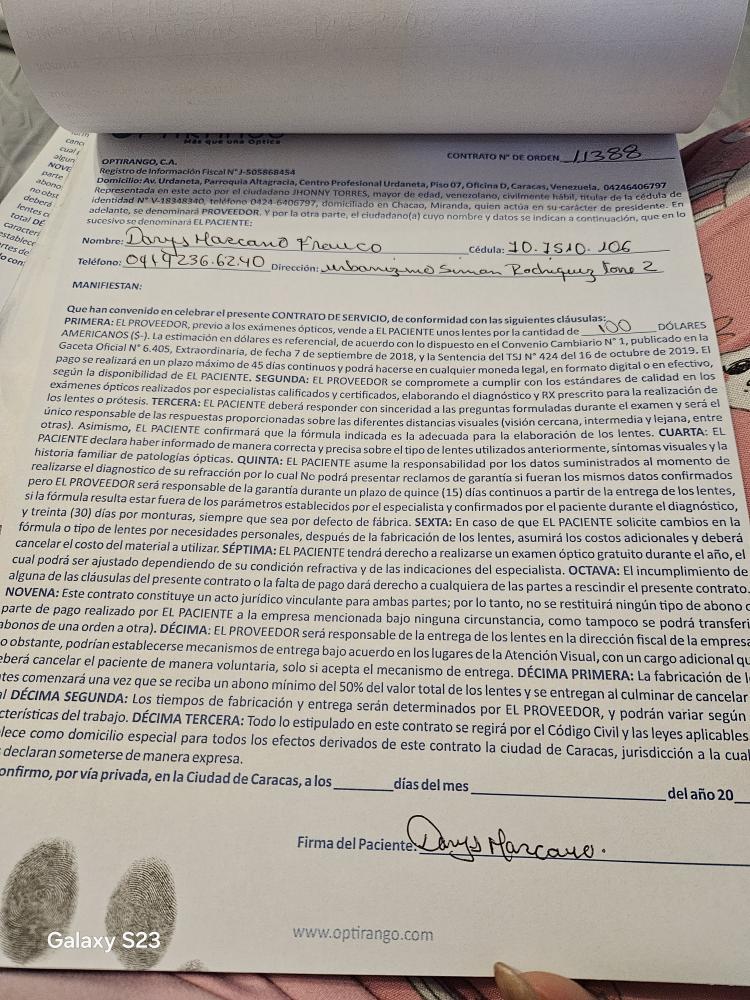 Más que una Óptica
CONTRATO N° DE ORDEN 11388
OPTIRANGO, C.A.
Registro de Información Fiscal N° J-505868454
Domicilio: Av. Urdaneta, Parroquia Altagracia, Centro Profesional Urdaneta, Piso 07, Oficina D, Caracas, Venezuela, 04246406797
Representada en este acto por el ciudadano JHONNY TORRES, mayor de edad, venezolano, civilmente hábil, titular de la cédula de
identidad N° V-18348340, teléfono 0424-6406797, domiciliado en Chacao, Miranda, quien actúa en su carácter de presidente. En
adelante, se denominará PROVEEDOR. Y por la otra parte, el ciudadano(a) cuyo nombre y datos se indican a continuación, que en lo
sucesivo se denominará EL PACIENTE:
Nombre: Darys Marcano Franco Cédula: 10.7510.106
Teléfono: 0414 236.62.40 Dirección: urbanizmo Simon Rodriguez Torre 2
MANIFIESTAN:
Que han convenido en celebrar el presente CONTRATO DE SERVICIO, de conformidad con las siguientes cláusulas:
PRIMERA: EL PROVEEDOR, previo a los exámenes ópticos, vende a EL PACIENTE unos lentes por la cantidad de 100 DÓLARES
AMERICANOS ($-). La estimación en dólares es referencial, de acuerdo con lo dispuesto en el Convenio Cambiario N° 1, publicado en la
Gaceta Oficial N° 6.405, Extraordinaria, de fecha 7 de septiembre de 2018, y la Sentencia del TSJ N° 424 del 16 de octubre de 2019. El
pago se realizará en un plazo máximo de 45 días continuos y podrá hacerse en cualquier moneda legal, en formato digital o en efectivo,
según la disponibilidad de EL PACIENTE. SEGUNDA: EL PROVEEDOR se compromete a cumplir con los estándares de calidad en los
exámenes ópticos realizados por especialistas calificados y certificados, elaborando el diagnóstico y RX prescrito para la realización de
los lentes o prótesis. TERCERA: EL PACIENTE deberá responder con sinceridad a las preguntas formuladas durante el examen y será el
único responsable de las respuestas proporcionadas sobre las diferentes distancias visuales (visión cercana, intermedia y lejana, entre
otras). Asimismo, EL PACIENTE confirmará que la fórmula indicada es la adecuada para la elaboración de los lentes. CUARTA: EL
PACIENTE declara haber informado de manera correcta y precisa sobre el tipo de lentes utilizados anteriormente, síntomas visuales y la
historia familiar de patologías ópticas. QUINTA: EL PACIENTE asume la responsabilidad por los datos suministrados al momento de
realizarse el diagnostico de su refracción por lo cual No podrá presentar reclamos de garantía si fueran los mismos datos confirmados
pero EL PROVEEDOR será responsable de la garantía durante un plazo de quince (15) días continuos a partir de la entrega de los lentes,
si la fórmula resulta estar fuera de los parámetros establecidos por el especialista y confirmados por el paciente durante el diagnóstico,
y treinta (30) días por monturas, siempre que sea por defecto de fábrica. SEXTA: En caso de que EL PACIENTE solicite cambios en la
fórmula o tipo de lentes por necesidades personales, después de la fabricación de los lentes, asumirá los costos adicionales y deberá
cancelar el costo del material a utilizar. SÉPTIMA: EL PACIENTE tendrá derecho a realizarse un examen óptico gratuito durante el año, el
cual podrá ser ajustado dependiendo de su condición refractiva y de las indicaciones del especialista. OCTAVA: El incumplimiento de
alguna de las cláusulas del presente contrato o la falta de pago dará derecho a cualquiera de las partes a rescindir el presente contrato.
NOVENA: Este contrato constituye un acto jurídico vinculante para ambas partes; por lo tanto, no se restituirá ningún tipo de abono o
parte de pago realizado por EL PACIENTE a la empresa mencionada bajo ninguna circunstancia, como tampoco se podrá transferi
abonos de una orden a otra). DÉCIMA: EL PROVEEDOR será responsable de la entrega de los lentes en la dirección fiscal de la empresa
o obstante, podrían establecerse mecanismos de entrega bajo acuerdo en los lugares de la Atención Visual, con un cargo adicional qu
eberá cancelar el paciente de manera voluntaria, solo si acepta el mecanismo de entrega. DÉCIMA PRIMERA: La fabricación de l
tes comenzará una vez que se reciba un abono mínimo del 50% del valor total de los lentes y se entregan al culminar de cancelar
al DÉCIMA SEGUNDA: Los tiempos de fabricación y entrega serán determinados por EL PROVEEDOR, y podrán variar según
cterísticas del trabajo. DÉCIMA TERCERA: Todo lo estipulado en este contrato se regirá por el Código Civil y las leyes aplicables
lece como domicilio especial para todos los efectos derivados de este contrato la ciudad de Caracas, jurisdicción a la cual
declaran someterse de manera expresa.
onfirmo, por vía privada, en la Ciudad de Caracas, a los ______ días del mes ______ del año 20__
Firma del Paciente: Darys Marcano.
www.optirango.com
Galaxy S23